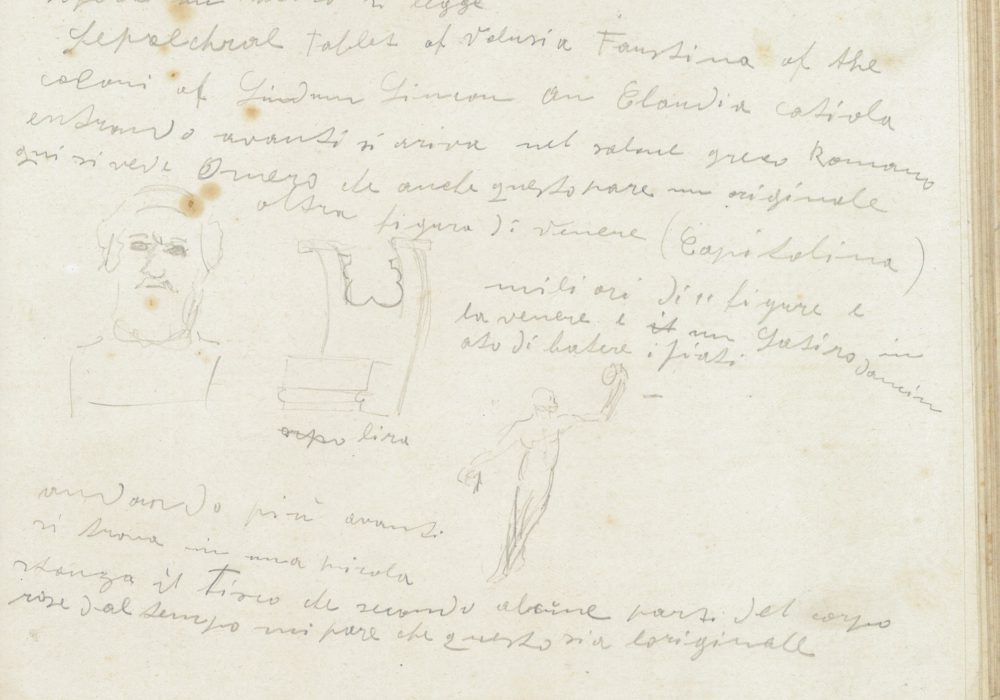 si legge
Sepolchral tablet of Volusia Faustina of the
coloni of Lindum Lincon an Claudia catiola
entrando avanti si ariva nel salone greco Romano
qui si vede Omero che anche questo pare un originale
altra figura di venere (Capitolina)
miliori di figure e
la venere e it un Satiro in
ato di batere i piati dancin
arpo lira
andando più avanti
si trova in una picola
stanza il Tiseo che secondo alcune parti del corpo
rose dal tempo mi pare che questo sia loriginale